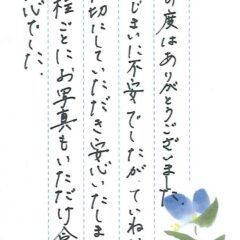 の度はありがとうございました
じまいに不安でしたがていねい
切にしていただき安心いたしま
程ごとにお写真もいただけ
心でした.